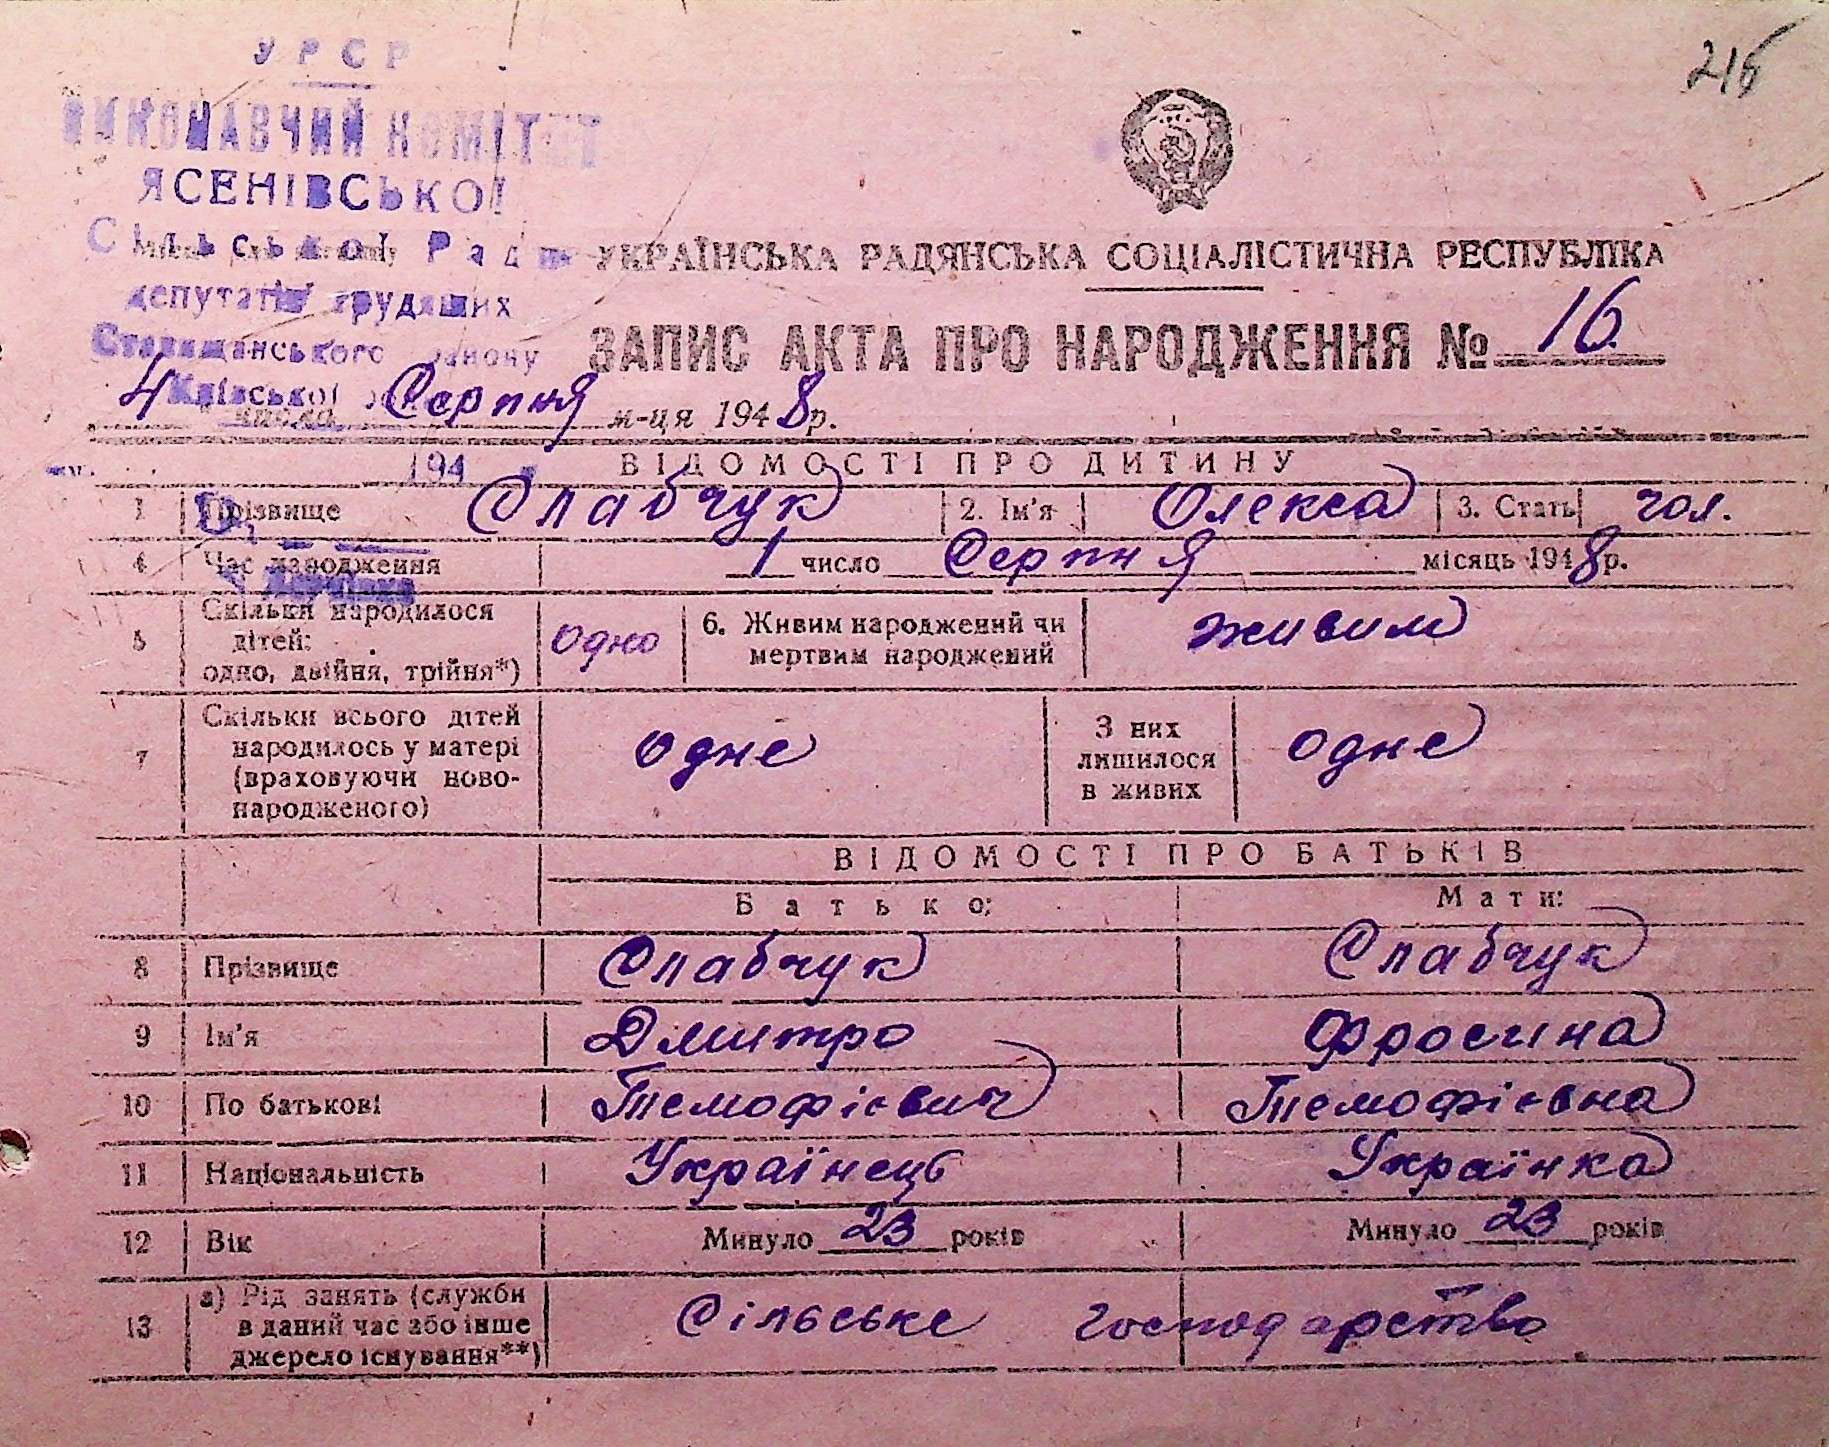 216
УРСР
ВИКОНАВЧИЙ КОМІТЕТ
ЯСЕНІВСЬКОЇ
Сільської Ради
депутатів трудящих
Ставищанського району
Київської
УКРАЇНСЬКА РАДЯНСЬКА СОЦІАЛІСТИЧНА РЕСПУБЛІКА
ЗАПИС АКТА ПРО НАРОДЖЕННЯ № 16
4 числа Серпня м-ця 1948 р.
194
ВІДОМОСТІ ПРО ДИТИНУ
1 Прізвище Слабчук 2. Ім'я Олекса 3. Стать чол.
4 Час народження 1 число Серпня місяць 1948 р.
5 Скільки народилося дітей: одно, двійня, трійня*) одно 6. Живим народжений чи мертвим народжений живим
7 Скільки всього дітей народилось у матері (враховуючи ново-народженого) одне З них лишилося в живих одне
ВІДОМОСТІ ПРО БАТЬКІВ
Батько: Мати:
8 Прізвище Слабчук Слабчук
9 Ім'я Дмитро Фросина
10 По батькові Темофієвич Темофієвна
11 Національність Українець Українка
12 Вік Минуло 23 років Минуло 23 років
13 а) Рід занять (служби в даний час або інше джерело існування**) Сільське господарство